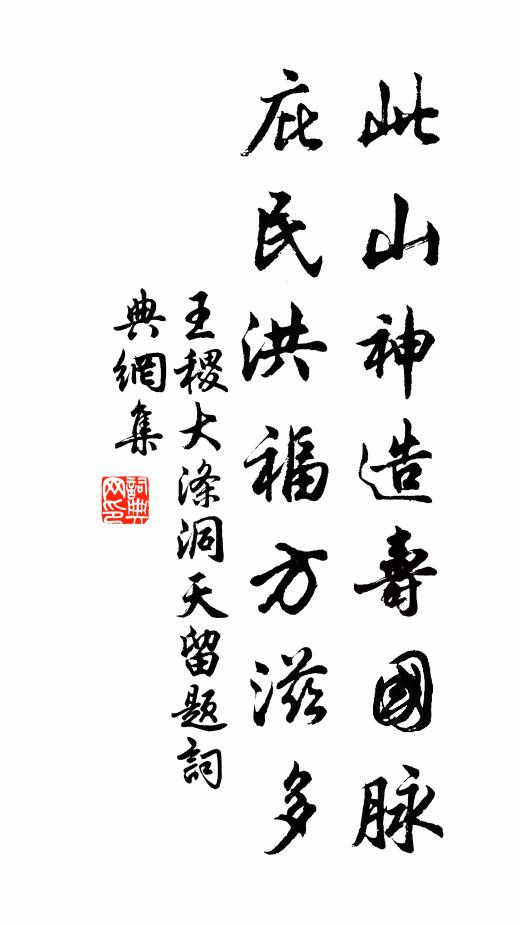 此山神造壽國脉
庇民洪福方滋多
王稷大滌洞天留題詞
典網集
詞典网印